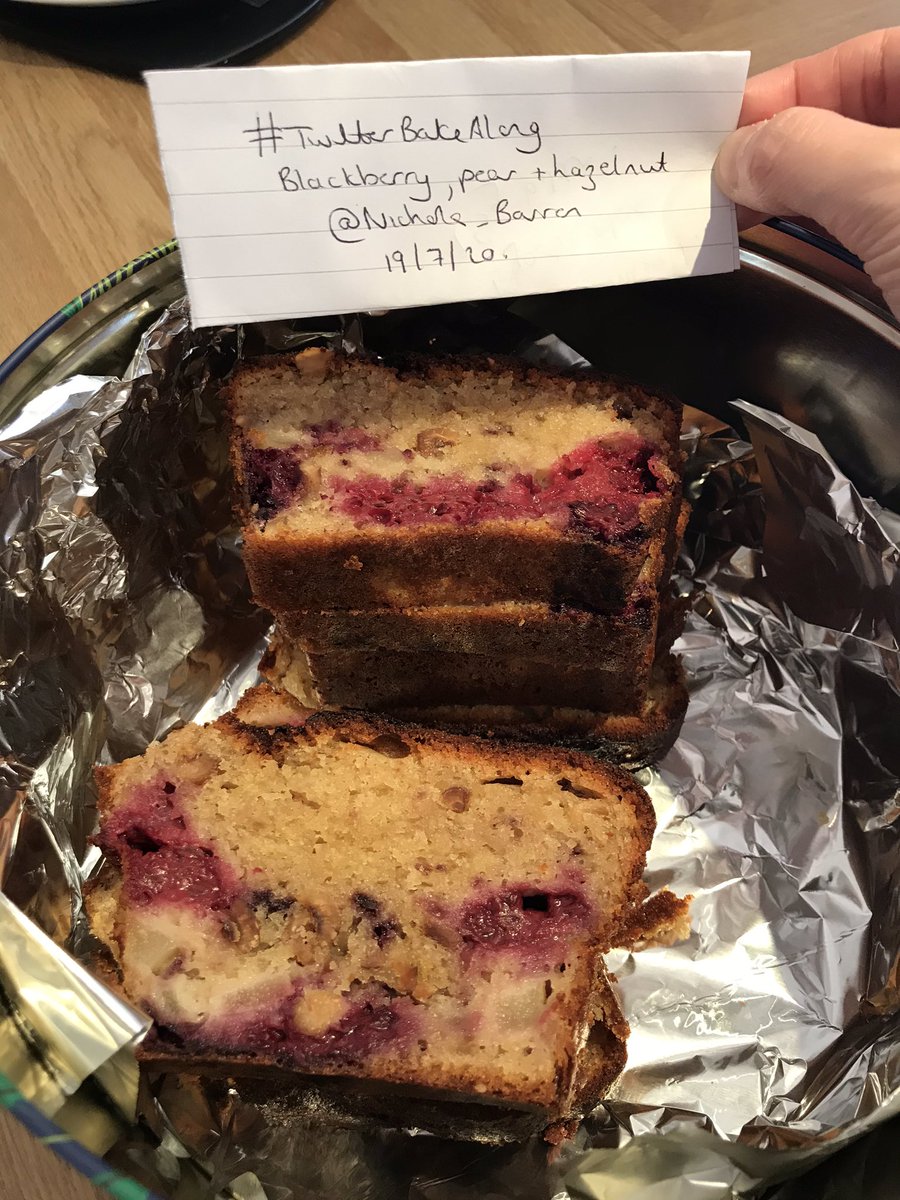 #TwitterBakeAlong
Blackberry, pear + hazelnut
@Nichola_Barron
19/7/20.